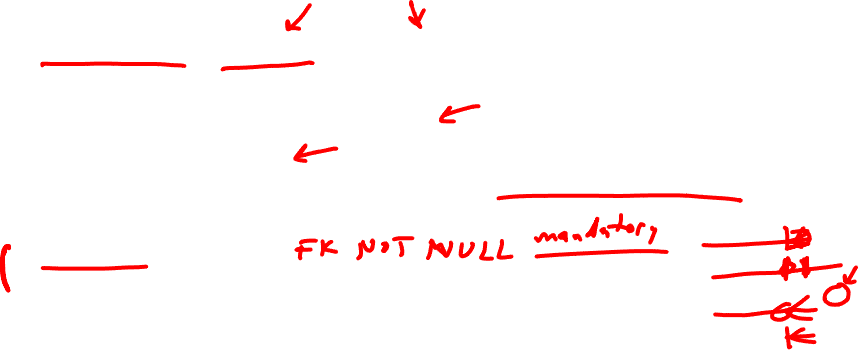 FK NOT NULL mandatory